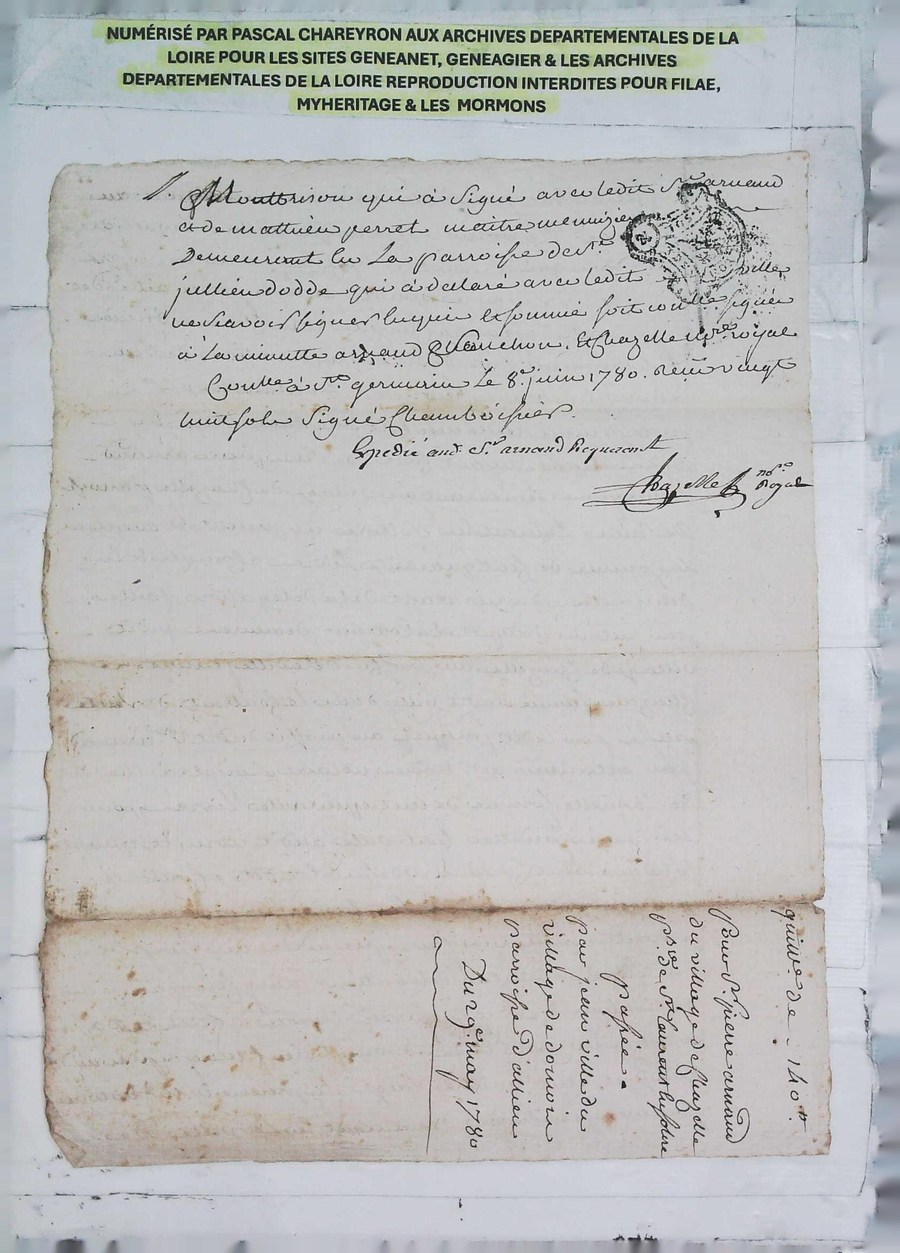 NUMÉRISÉ PAR PASCAL CHAREYRON AUX ARCHIVES DEPARTEMENTALES DE LA
LOIRE POUR LES SITES GENEANET, GENEAGIER & LES ARCHIVES
DEPARTEMENTALES DE LA LOIRE REPRODUCTION INTERDITES POUR FILAE,
MYHERITAGE & LES MORMONS
Montbrison qui à Signé avec ledit Sr. arnaud
et de mathieu perret maitre menuzier
Demeurant en La parroisse de St.
jullien dodde qui à declaré avec ledit ville
ne Scavoir Signer Enquis et sommé soit con lle Signée
à La minutte arnaud Chazelle nre. royal
Conlle. à St. germain Le 8e. juin 1780. Recu vingt
huit sols Signé
Expedié aud. Sr. arnaud Requerant
Chazelle nore. Royal
quitce. de 140 tt.
Pour Sr. pierre arnaud
du village de
psse. de St. Laurent
passée
par jean ville du
village de
parroisse d'allieu
Du 29e. may 1780